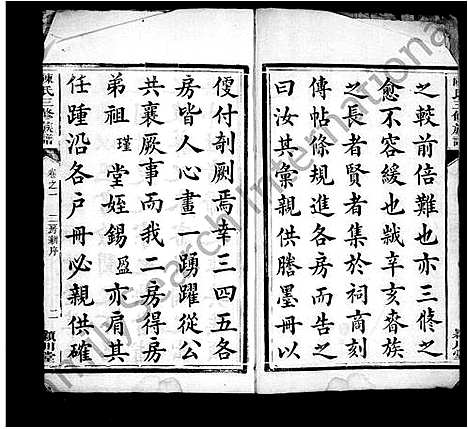 之較前倍難也亦三修之
愈不容緩也歲辛亥春族
之長者賢者集於祠商刻
傳帖條規進各房而告之
曰汝其彙親供謄墨冊以
便付剞劂焉幸三四五各
房皆人心畫一踴躍從公
共襄厥事而我二房得房
弟祖瑾堂姪錫盈亦肩其
任踵沿各戶冊必親供確
陳氏三修族譜
卷之一
二房新序
二
潁川堂